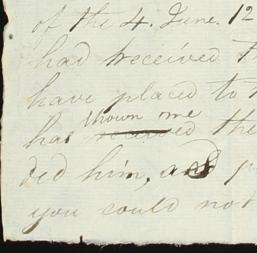 of the 4. June. 12
had received
have placed to
shown me
has received the
ded him, and p
you could not